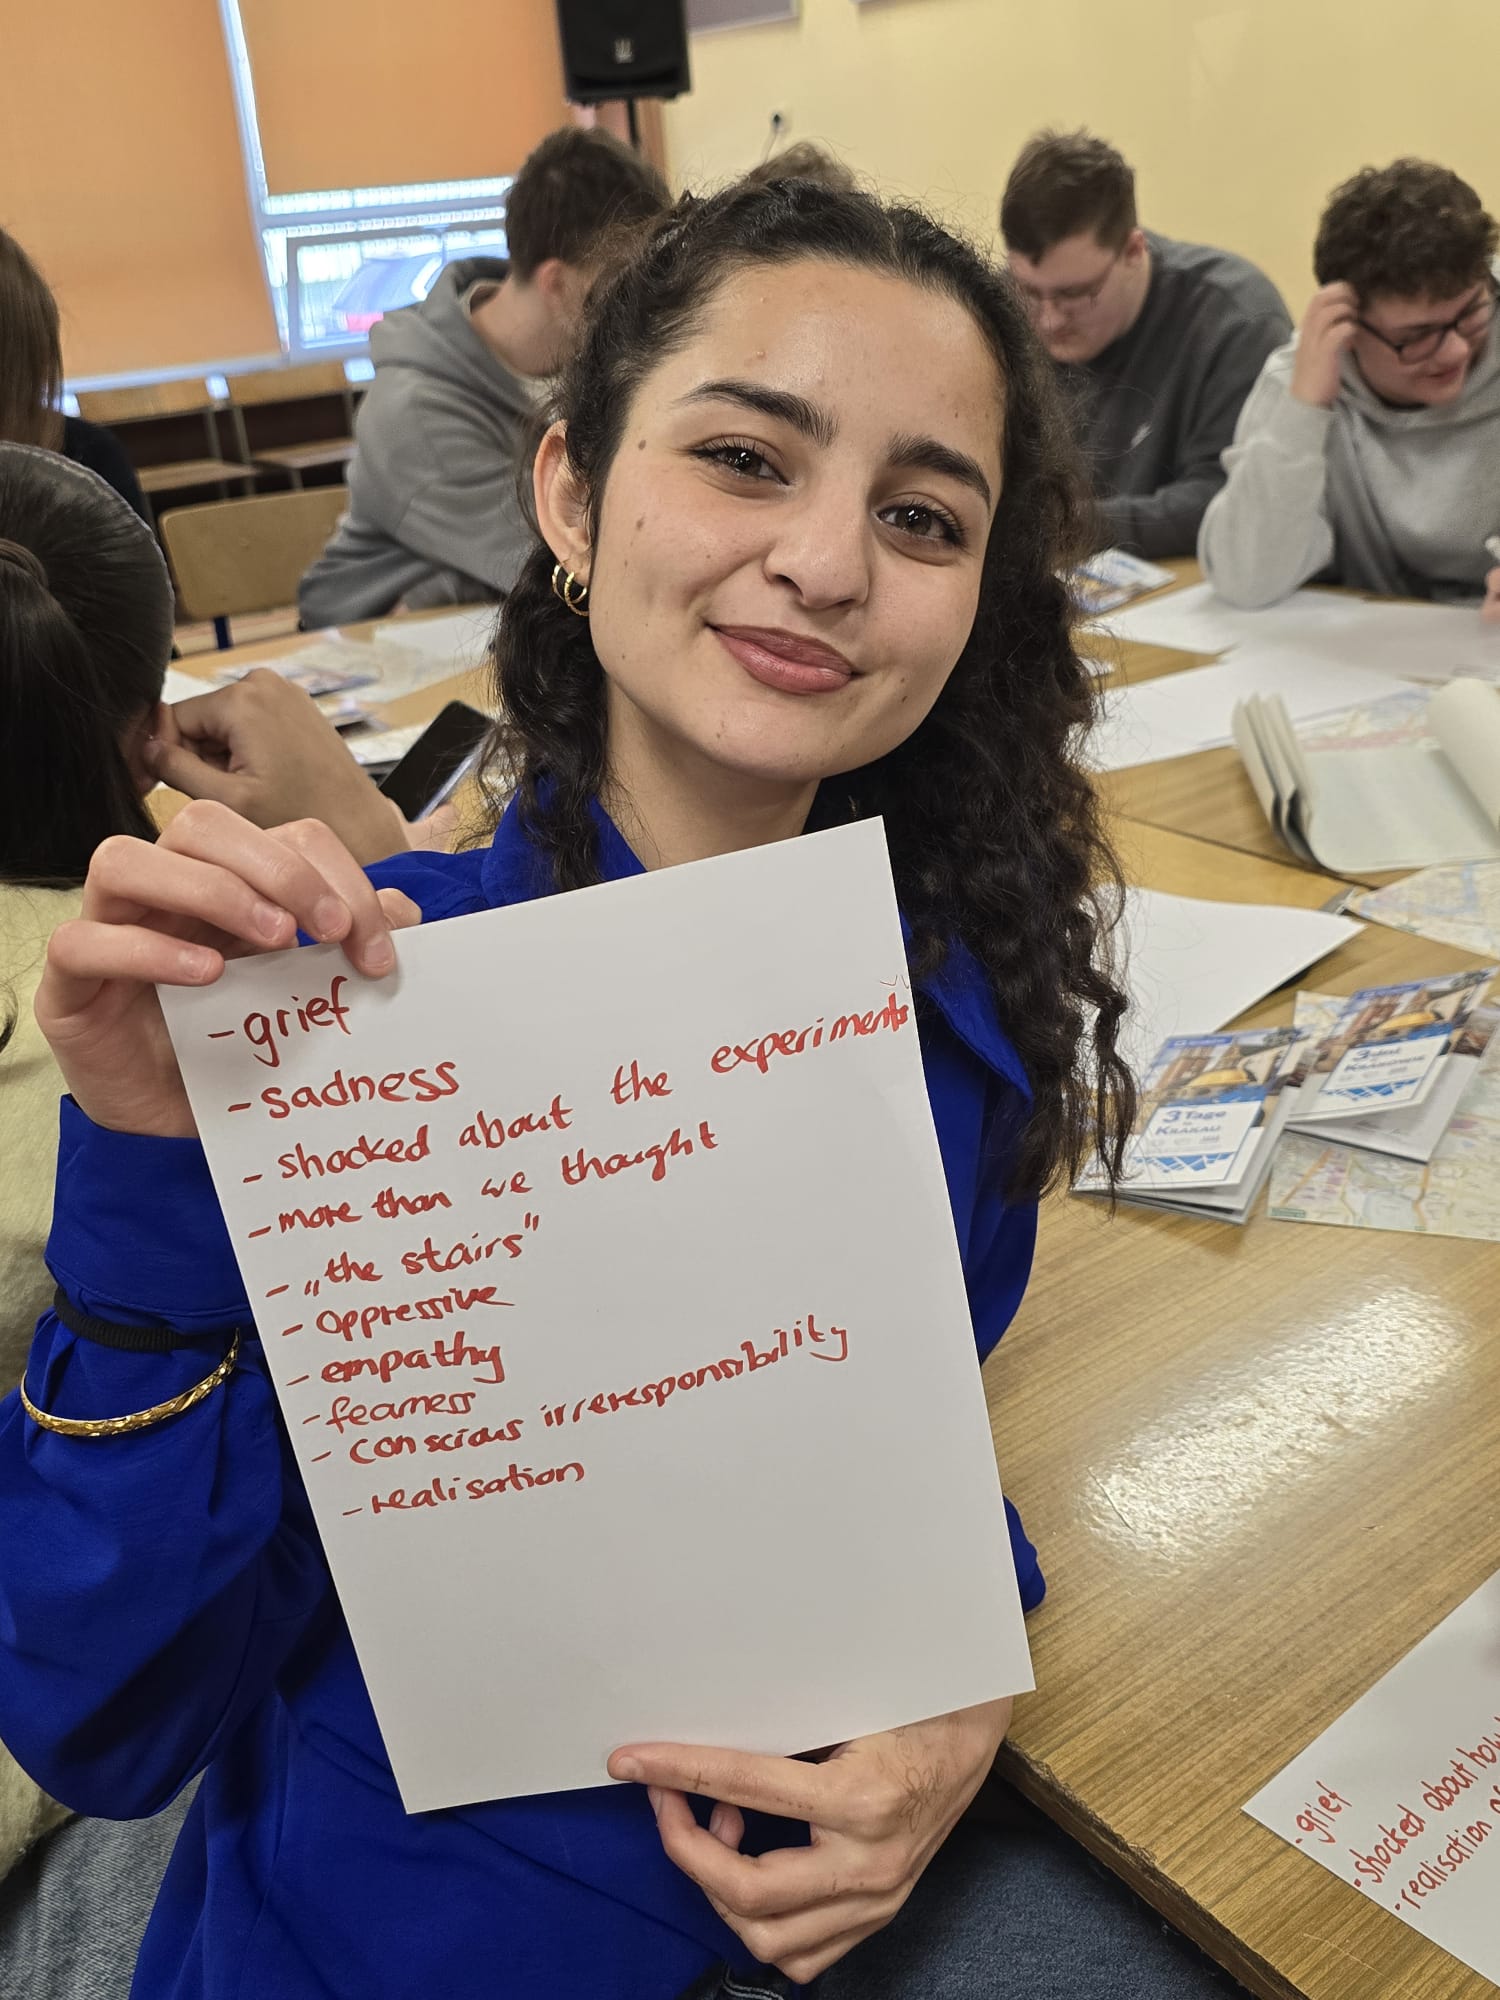 - grief
- sadness
- shocked about the experiments
- more than we thought
- „the stairs"
- oppressive
- empathy
- fearness
- conscious irreresponsibility
- realisation
3 Tage
in
KRAKAU
3
KRAKOWIE
- grief
- shocked about how
- realisation